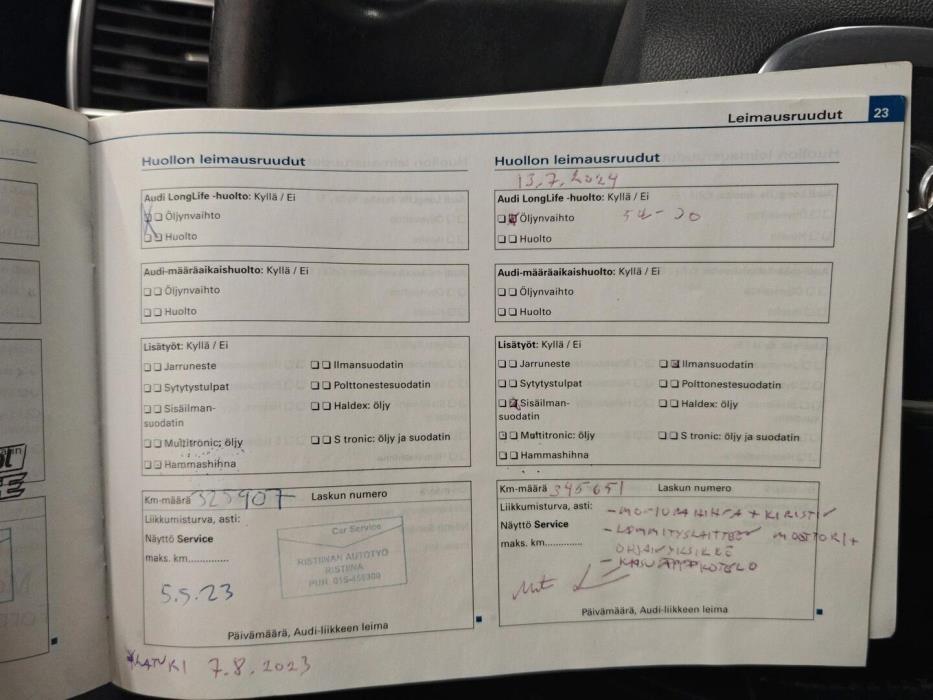 Leimausruudut 23
Huollon leimausruudut
Audi LongLife -huolto: Kyllä / Ei
Öljynvaihto
Huolto
Audi-määräaikaishuolto: Kyllä / Ei
Öljynvaihto
Huolto
Lisätyöt: Kyllä / Ei
Jarruneste
Ilmansuodatin
Sytytystulpat
Polttonestesuodatin
Sisäilman-
suodatin
Haldex: öljy
Multitronic: öljy
S tronic: öljy ja suodatin
Hammashihna
Km-määrä 325907 Laskun numero
Liikkumisturva, asti:
Näyttö Service
maks. km..............
Car Service
RISTIINAN AUTOTYÖ
RISTIINA
PUH. 015-
5.5.23
Päivämäärä, Audi-liikkeen leima
7.8.2023
Huollon leimausruudut
13.7.2024
Audi LongLife -huolto: Kyllä / Ei
Öljynvaihto
Huolto
Audi-määräaikaishuolto: Kyllä / Ei
Öljynvaihto
Huolto
Lisätyöt: Kyllä / Ei
Jarruneste
Ilmansuodatin
Sytytystulpat
Polttonestesuodatin
Sisäilman-
suodatin
Haldex: öljy
Multitronic: öljy
S tronic: öljy ja suodatin
Hammashihna
Km-määrä 345651 Laskun numero
Liikkumisturva, asti:
Näyttö Service
maks. km..............
Päivämäärä, Audi-liikkeen leima